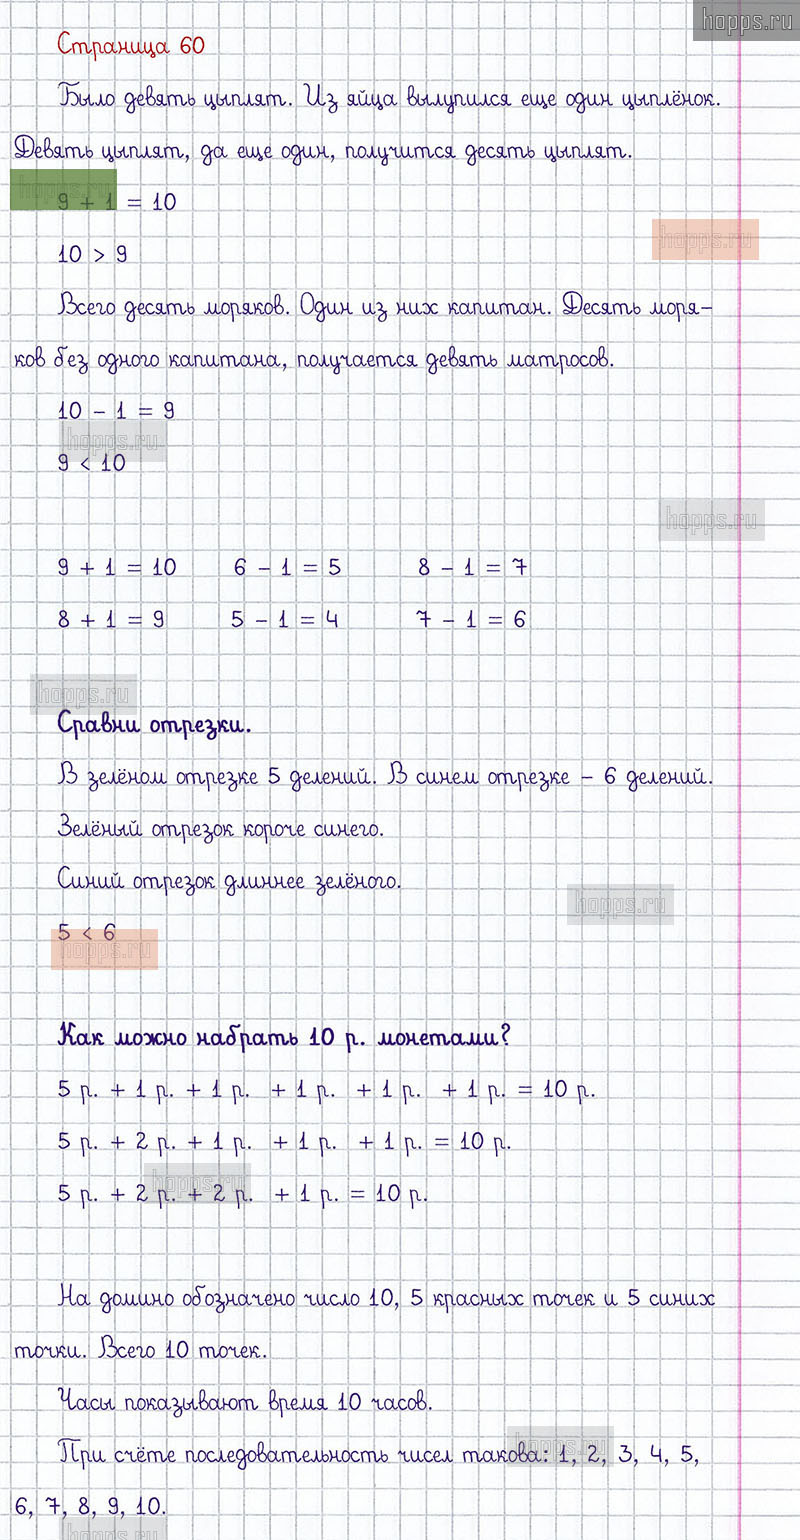 hopps.ru
Страница 60
Было девять цыплят. Из яйца вылупился еще один цыплёнок.
Девять цыплят, да еще один, получится десять цыплят.
hopps.ru
9 + 1 = 10
hopps.ru
10 > 9
Всего десять моряков. Один из них капитан. Десять моря-
ков без одного капитана, получается девять матросов.
10 - 1 = 9
hopps.ru
9 < 10
hopps.ru
9 + 1 = 10 6 - 1 = 5 8 - 1 = 7
8 + 1 = 9 5 - 1 = 4 7 - 1 = 6
hopps.ru
Сравни отрезки.
В зелёном отрезке 5 делений. В синем отрезке - 6 делений.
Зелёный отрезок короче синего.
Синий отрезок длиннее зелёного.
hopps.ru
5 < 6
hopps.ru
Как можно набрать 10 р. монетами?
5 р. + 1 р. + 1 р. + 1 р. + 1 р. + 1 р. = 10 р.
5 р. + 2 р. + 1 р. + 1 р. + 1 р. = 10 р.
hopps.ru
5 р. + 2 р. + 2 р. + 1 р. = 10 р.
На домино обозначено число 10, 5 красных точек и 5 синих
точки. Всего 10 точек.
Часы показывают время 10 часов.
hopps.ru
При счёте последовательность чисел такова: 1, 2, 3, 4, 5,
6, 7, 8, 9, 10.
hopps.ru